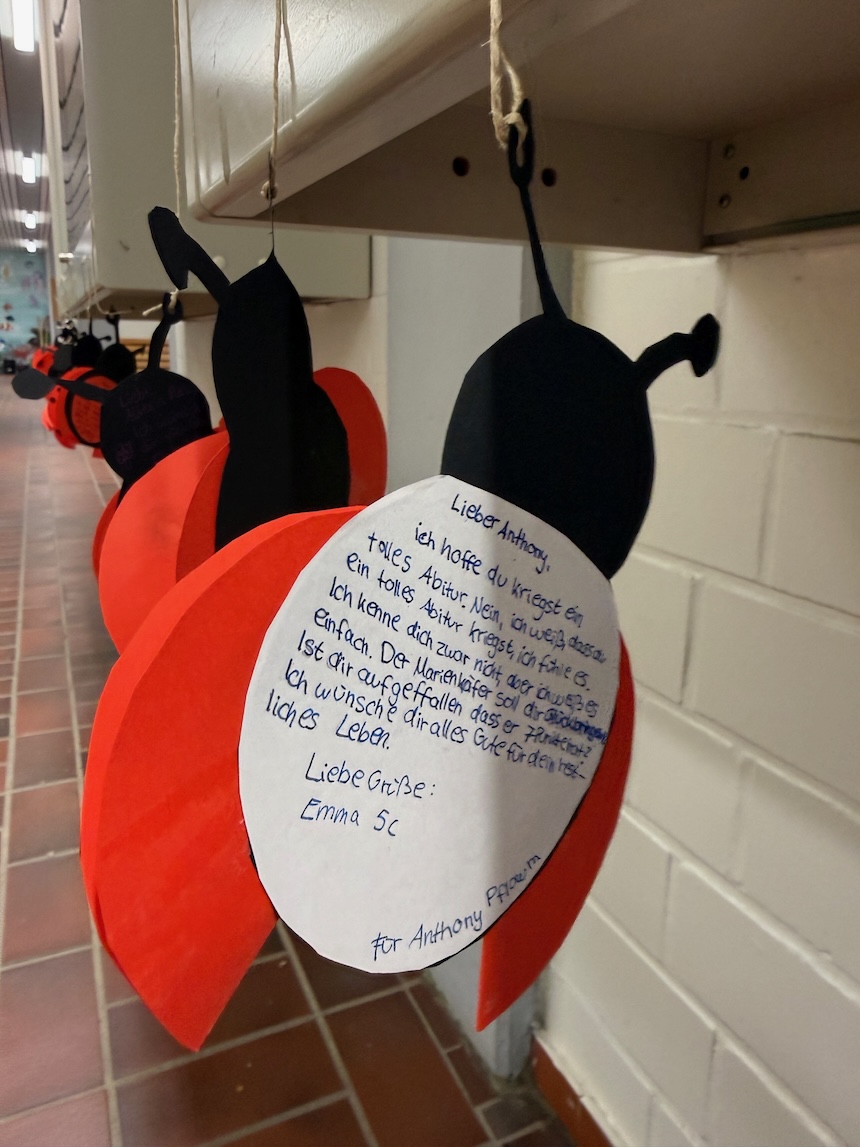 Lieber Anthony,
ich hoffe du kriegst ein
tolles Abitur. Nein, ich weiß, dass du
ein tolles Abitur kriegst, ich fühle es.
Ich kenne dich zwar nicht, aber ich weiß es
einfach. Der Marienkäfer soll dir Glück bringen.
Ist dir aufgefallen dass er 7 Punkte hat?
Ich wünsche dir alles Gute für dein rest-
liches Leben.
Liebe Grüße:
Emma 5c
für Anthony